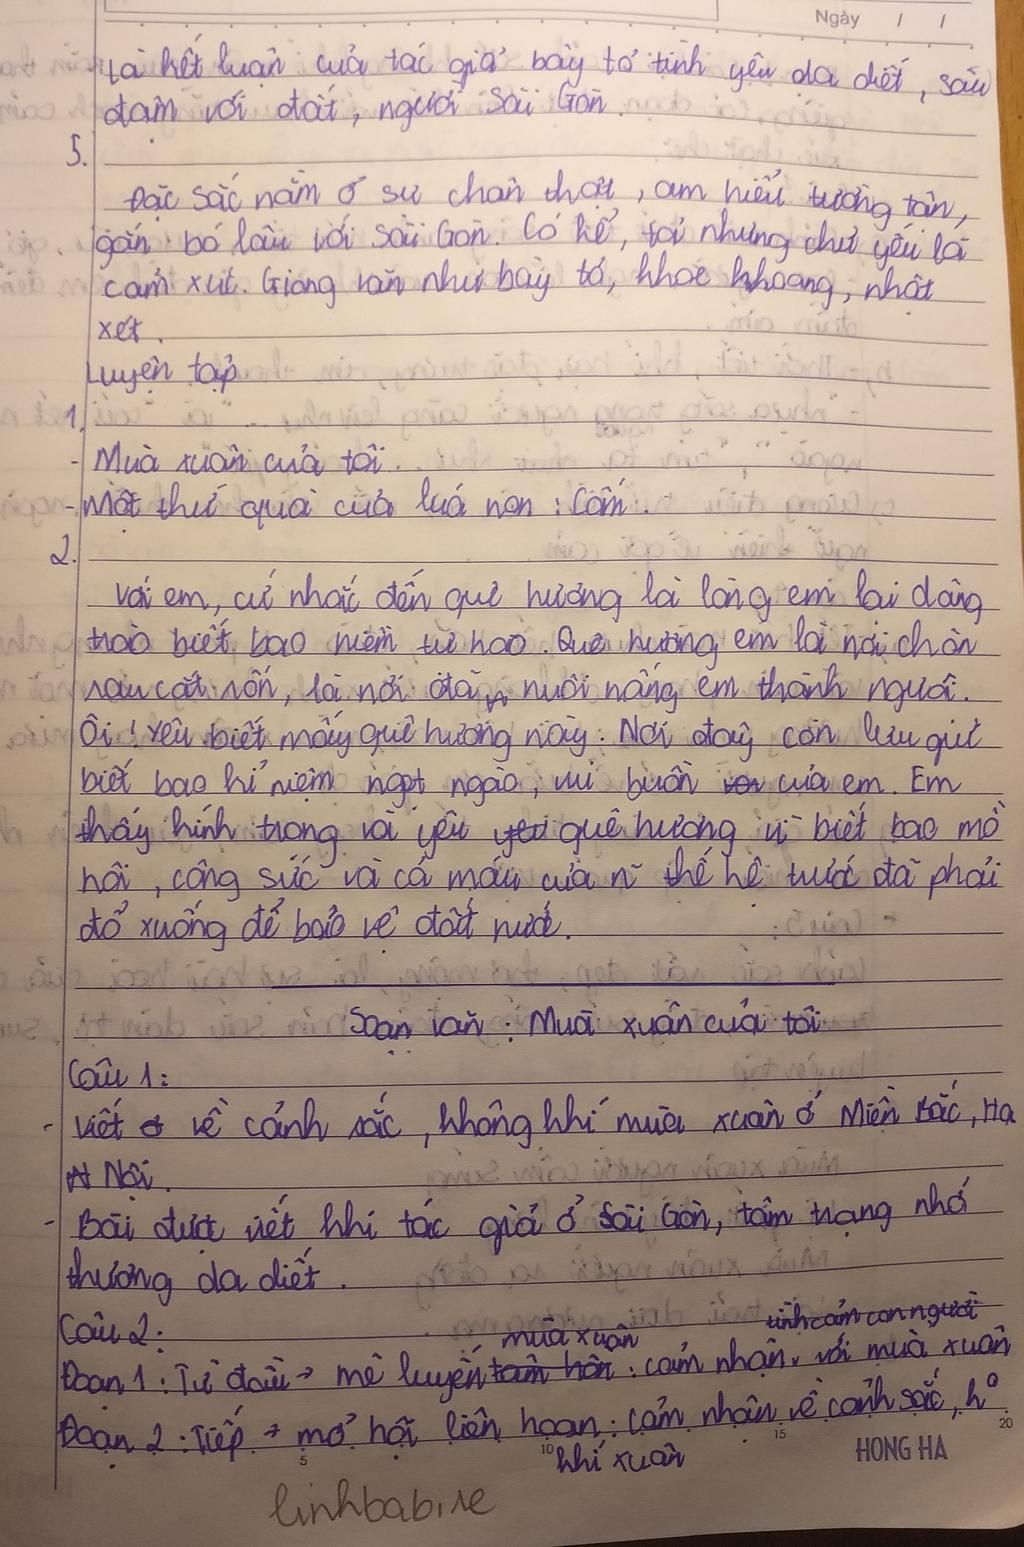 Ngày / /
Là kết luận của tác giả bày tỏ tình yêu da diết, sâu
đậm với đất, người Sài Gòn.
5.
Đặc sắc nằm ở sự chân thật, am hiểu tường tận,
gắn bó lâu với Sài Gòn. Có kể, tả nhưng chủ yếu là
cảm xúc. Giọng văn như bày tỏ, khoe khoang, nhật
xét.
Luyện tập
1.
- Mùa xuân của tôi.
- Một thứ quà của lúa non : Cốm.
2.
Với em, cứ nhắc đến quê hương là lòng em lại dâng
trào biết bao niềm tự hào. Quê hương em là nơi chôn
rau cắt rốn, là nơi đã nuôi nấng em thành người.
Ôi! Yêu biết mấy quê hương này. Nơi đây còn lưu giữ
biết bao kỉ niệm ngọt ngào, vui buồn của em. Em
thấy kính trọng và yêu quê hương vì biết bao mồ
hôi, công sức và cả máu của n~ thế hệ trước đã phải
đổ xuống để bảo vệ đất nước.
Soạn văn : Mùa xuân của tôi
Câu 1:
- Viết về cảnh sắc, không khí mùa xuân ở Miền Bắc, Hà
Nội.
- Bài được viết khi tác giả ở Sài Gòn, tâm trạng nhớ
thương da diết.
Câu 2:
tình cảm con người
mùa xuân
Đoạn 1 : Từ đầu → mê luyến : cảm nhận với mùa xuân
Đoạn 2 : Tiếp → mở hội liên hoan : cảm nhận về cảnh sắc, k°
khí xuân
5 10 15 20
HONG HA
linhbabine